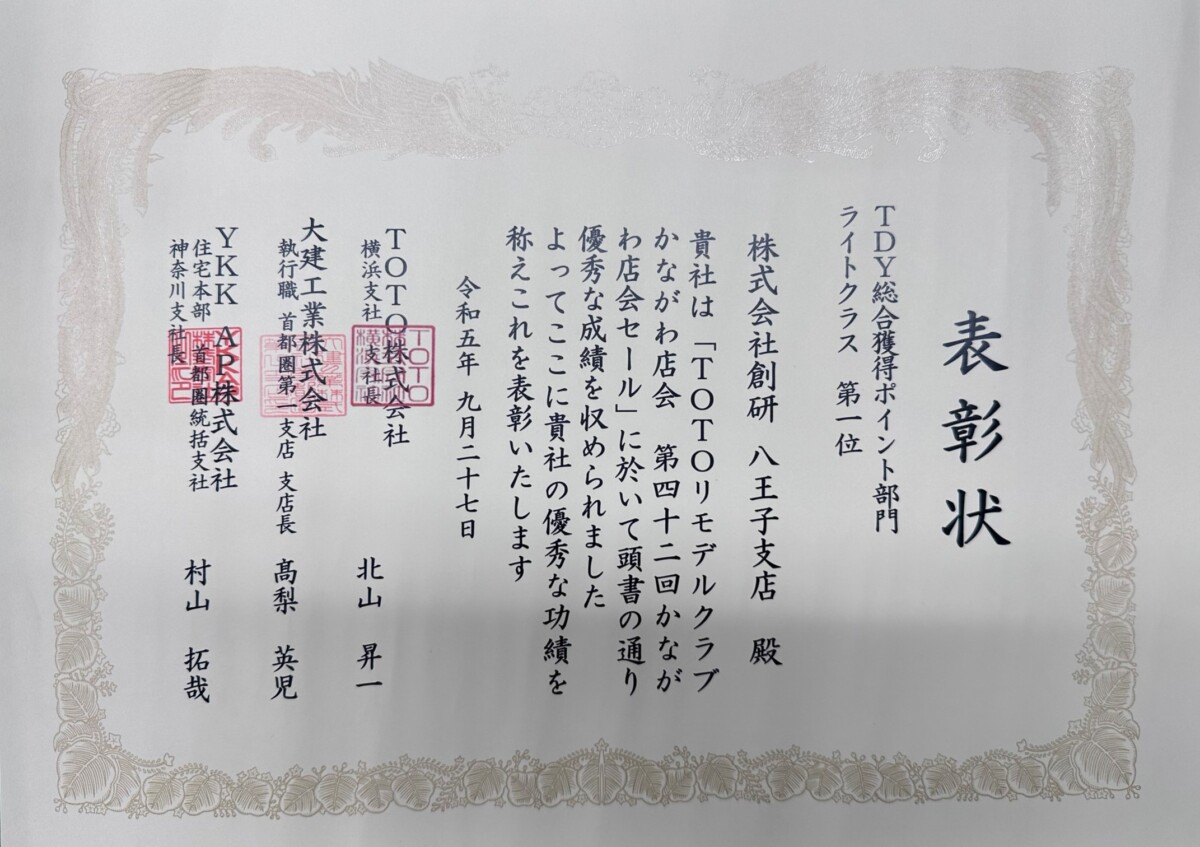 表彰状
TDY総合獲得ポイント部門
ライトクラス 第一位
株式会社創研 八王子支店 殿
貴社は「TOTOリモデルクラブ
かながわ店会 第四十二回かなが
わ店会セール」に於いて頭書の通り
優秀な成績を収められました
よってここに貴社の優秀な功績を
称えこれを表彰いたします
令和五年 九月二十七日
TOTO株式会社
横浜支社 支社長 北山 昇一
大建工業株式会社
執行職 首都圏第一支店 支店長 髙梨 英児
YKK AP株式会社
住宅本部 首都圏統括支社
神奈川支社長 村山 拓哉